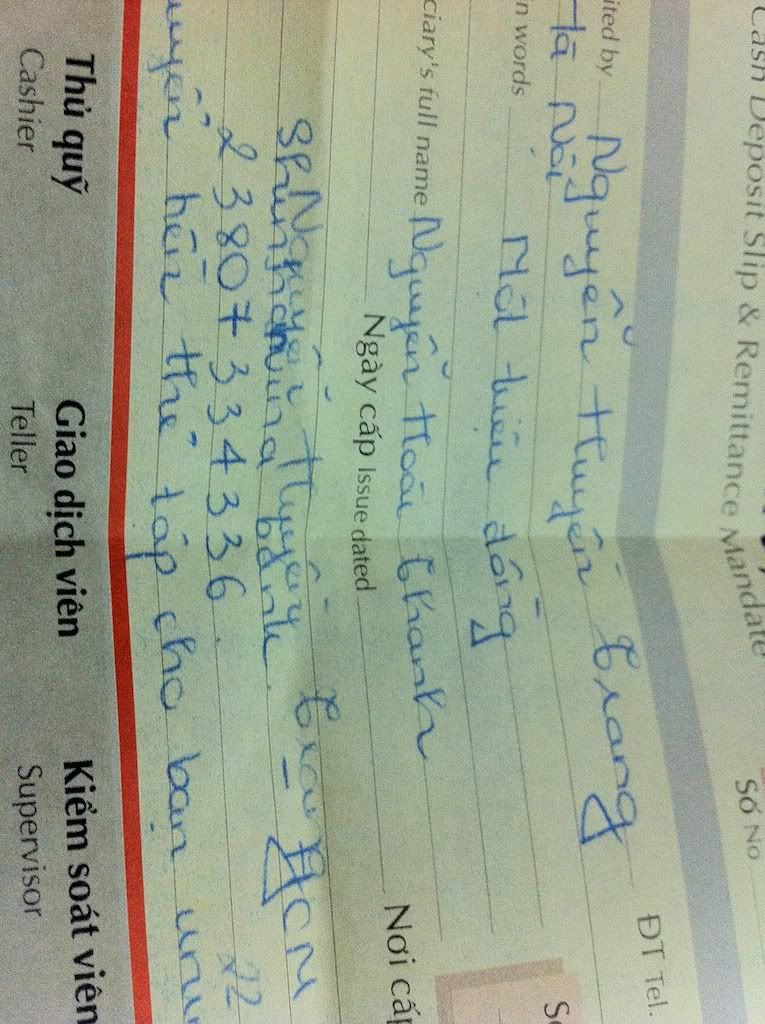 Cash Deposit Slip & Remittance Mandate
Số No
ited by Nguyễn Huyền Trang ĐT Tel.
Hà Nội
n words Một triệu đồng
ciary's full name Nguyễn Hoài Thanh
Ngày cấp Issue dated Nơi cấp
Nguyễn Huyền Trang HCM
22
2380733 4336.
tiền thi tập cho bạn
Thủ quỹ Giao dịch viên Kiểm soát viên
Cashier Teller Supervisor